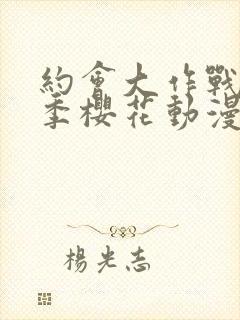 約會大作戰
季櫻花動漫
楊光志